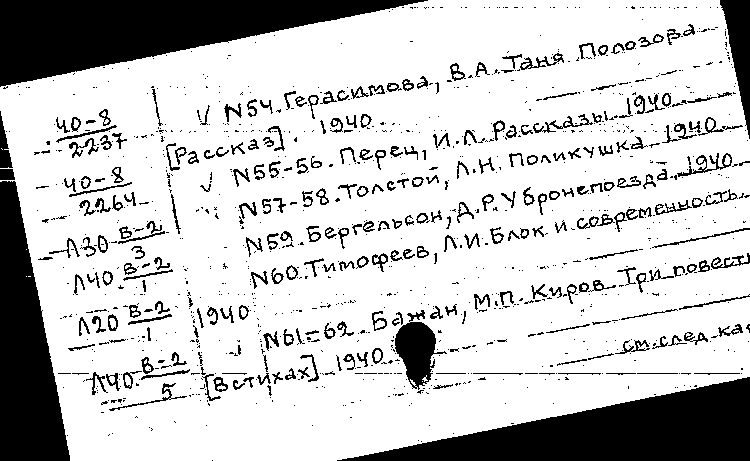 40-8
2237
40-8
2264
Л30 В-2
3
Л40. В-2
1
Л20 В-2
1
Л40. В-2
5
N54. Герасимова, В.А. Таня Полозова
[Рассказ]. 1940.
N55-56. Перец, И.Л. Рассказы 1940.
N57-58. Толстой, Л.Н. Поликушка 1940.
N59. Бергельсон, Д.Р. У бронепоезда. 1940
N60. Тимофеев, Л.И. Блок и современность.
1940
N61=62. Бажан, М.П. Киров. Три повест
[В стихах] 1940.
см. след. ка